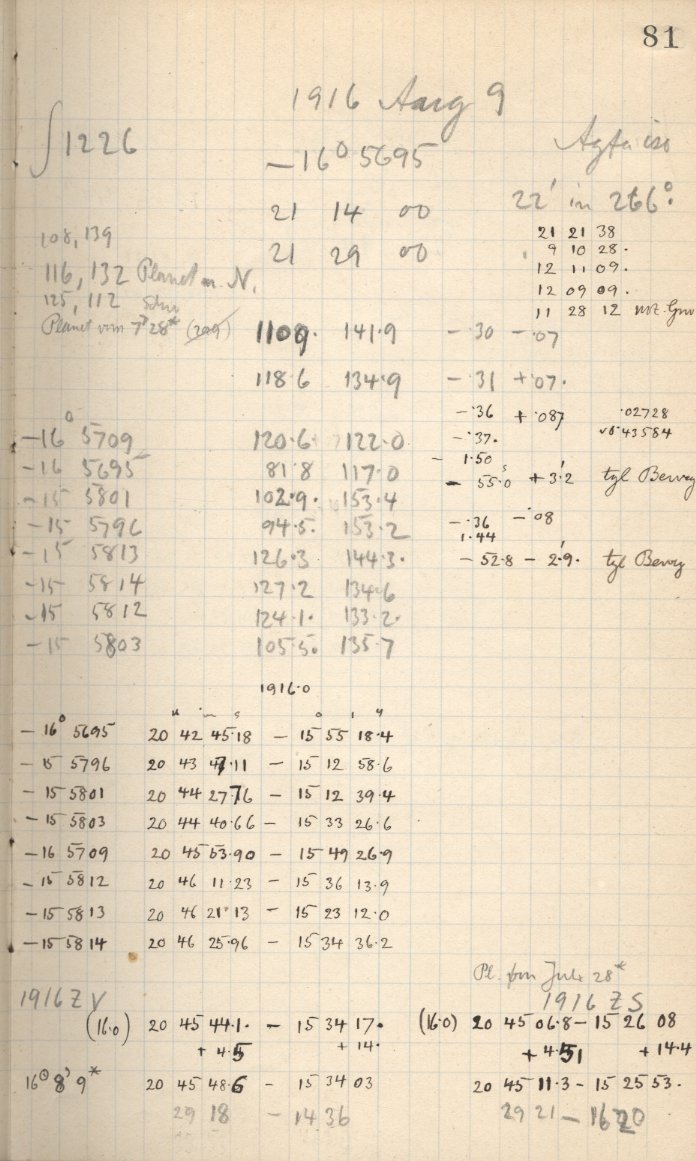 81
1916 Aug 9
∫1226
−16° 5695
Agfa iso
22' in 266°.
21 14 00
21 21 38
108, 139
21 29 00
9 10 28.
12 11 09.
116, 132 Planet N.
12 09 09.
125, 112
11 28 12 not Grw
Planet vom 7 28* (209)
1109. 141.9 − .30 − .07
118.6 134.9 − .31 + .07.
− .36 + .087 .02728
− .37. .43584
−16° 5709 120.6 122.0
− 1.50
−16 5695 81.8 117.0
− 55.0 + 3.2 tgl Beweg
−15 5801 102.9. 153.4
−15 5796 94.5. 153.2
− .36 − .08
1.44
−15 5813 126.3 144.3.
− 52.8 − 2.9. tgl Beweg
−15 5814 127.2 134.6
−15 5812 124.1. 133.2.
−15 5803 105.5. 135.7
1916.0
−16° 5695 20 42 45.18 − 15 55 18.4
−15 5796 20 43 47.11 − 15 12 58.6
−15 5801 20 44 27.76 − 15 12 39.4
−15 5803 20 44 40.66 − 15 33 26.6
−16 5709 20 45 53.90 − 15 49 26.9
−15 5812 20 46 11.23 − 15 36 13.9
−15 5813 20 46 21.13 − 15 23 12.0
−15 5814 20 46 25.96 − 15 34 36.2
Pl. von Juli 28*
1916 ZV
1916 ZS
(16.0) 20 45 44.1. − 15 34 17.
(16.0) 20 45 06.8 − 15 26 08
+ 4.5 + 14.
+ 4.51 + 14.4
16 8 9* 20 45 48.6 − 15 34 03
20 45 11.3 − 15 25 53.
29 18 − 14 36
29 21 − 16 20